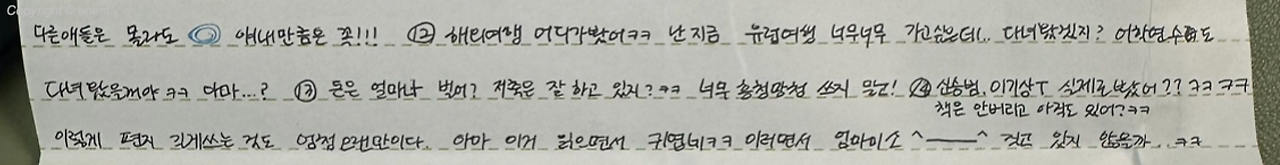 다른애들은 몰라도 얘내만큼은 꼭!!! ⑫ 해외여행 어디가봤어ㅋㅋ 난지금 유럽여행 너무너무 가고싶은데.. 다녀왔겠지? 어학연수도
다녀왔을꺼야 ㅋㅋ 아마...? ⑬ 돈은 얼마나 벌어? 저축은 잘 하고 있지?ㅋㅋ 너무 흥청망청 쓰지 말고! ⑭ 신승범, 이기상T 실제로 봤어?? ㅋㅋㅋㅋ
책은 안버리고 아직도 있어?ㅋㅋ
이렇게 편지 길게쓰는 것도 엄청 오랜만이다. 아마 이거 읽으면서 귀엽네ㅋㅋ 이러면서 엄마미소 ^――^ 짓고 있지 않을까..ㅋㅋ